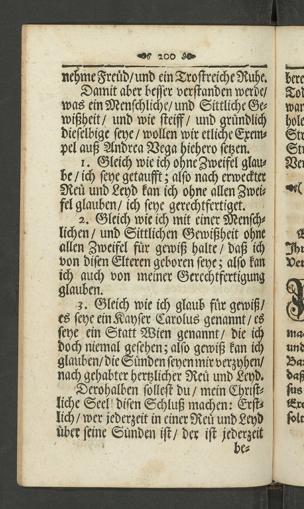 200
nehme Freüd/ und ein Trostreiche Ruhe.
Damit aber besser verstanden werde/
was ein Menschliche/ und Sittliche Ge-
wißheit/ und wie steiff/ und gründlich
dieselbige seye/ wollen wir etliche Exem-
pel auß Andrea Vega hiehero setzen.
1. Gleich wie ich ohne Zweifel glau-
be/ ich seye getaufft; also nach erweckter
Reü und Leyd kan ich ohne allen Zwei-
fel glauben/ ich seye gerechtfertiget.
2. Gleich wie ich mit einer Mensch-
lichen/ und Sittlichen Gewißheit ohne
allen Zweifel für gewiß halte/ daß ich
von disen Elteren geboren seye; also kan
ich auch von meiner Gerechtfertigung
glauben.
3. Gleich wie ich glaub für gewiß/
es seye ein Kayser Carolus genannt/ es
seye ein Statt Wien genannt/ die ich
doch niemal gesehen; also gewiß kan ich
glauben/ die Sünden seyen mir verzyhen/
nach gehabter hertzlicher Reü und Leyd.
Derohalben sollest du/ mein Christ-
liche Seel disen Schluß machen: Erst-
lich/ wer jederzeit in einer Reü und Leyd
über seine Sünden ist/ der ist jederzeit
be-